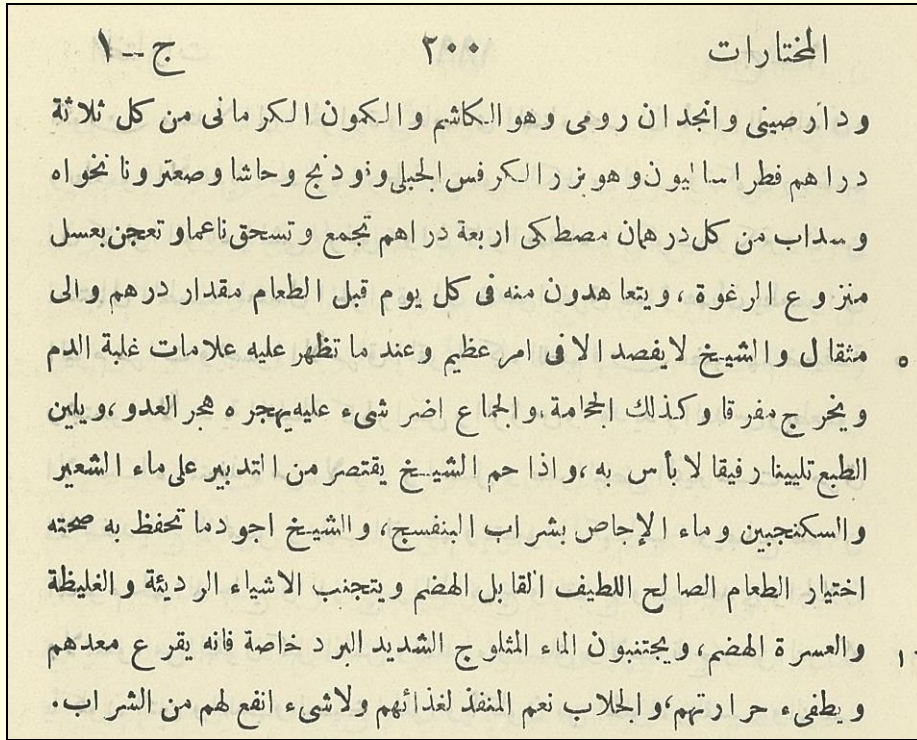 المختارات ٢٠٠ ج ــ ١
ودارصينى وانجدان رومى وهو الكاشم والكمون الكرمانى من كل ثلاثة
دراهم فطراساليون وهو بزر الكرفس الجبلى وفودنج وحاشا وصعتر ونانخواه
وسداب من كل درهمان مصطكى اربعة دراهم تجمع وتسحق ناعما وتعجن بعسل
منزوع الرغوة ، ويتعاهدون منه فى كل يوم قبل الطعام مقدار درهم والى
٥ مثقال والشيخ لايفصد الا فى امر عظيم وعند ما تظهر عليه علامات غلبة الدم
ويخرج مفرقا وكذلك الحجامة، والجماع اضر شىء عليه يهجره هجر العدو، ويلين
الطبع تليينا رفيقا لا بأس به ، واذا حم الشيخ يقتصر من التدبير على ماء الشعير
والسكنجبين وماء الإجاص بشراب البنفسج، والشيخ اجود ما تحفظ به صحته
اختيار الطعام الصالح اللطيف القابل الهضم ويتجنب الاشياء الرديئة والغليظة
والعسرة الهضم، ويجتنبون الماء المثلوج الشديد البرد خاصة فانه يقرع معدهم
ويطفىء حرارتهم، والجلاب نعم المنفذ لغذائهم ولاشىء انفع لهم من الشراب.